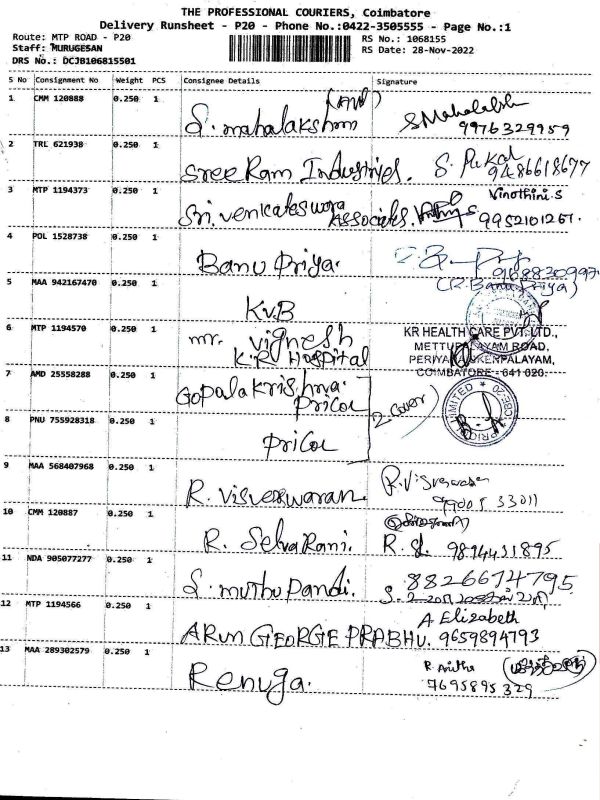 THE PROFESSIONAL COURIERS, Coimbatore
Delivery Runsheet - P20 - Phone No.:0422-3505555 - Page No.:1
Route: MTP ROAD - P20
RS No.: 1068155
Staff: MURUGESAN
RS Date: 28-Nov-2022
DRS No.: DCJB106815501
S No Consignment No Weight PCS Consignee Details Signature
1 CMM 120888 0.250 1 S. mahalakshmi S Mahalakshmi
9976329959
2 TRL 621938 0.250 1 Sree Ram Industries. S. Pukal
9486618677
3 MTP 1194373 0.250 1 Sri. Venkateswara Associates. Vinothini.S
9952101261.
4 POL 1528738 0.250 1 Banu Priya.
(R. Banu Priya)
5 MAA 942167470 0.250 1 K.V.B
6 MTP 1194570 0.250 1 mr. Vignesh
K.R Hospital
KR HEALTH CARE PVT. LTD.,
METTUPALAYAM ROAD,
COIMBATORE - 641 020.
7 AMD 25558288 0.250 1 Gopalakrishna.
Pricol
2 cover
8 PNU 755928318 0.250 1 Pricol
PRICOL LIMITED
9 MAA 568407968 0.250 1 R. Visveswaran R. Visveswaran
99005 33011
10 CMM 120887 0.250 1 R. Selva Rani. R. Sl. 9894431895
11 NDA 905077277 0.250 1 S. muthu Pandi. 8826674795
12 MTP 1194566 0.250 1 ARUN GEORGE PRABHU. A. Elizabeth
9659894793
13 MAA 289302579 0.250 1 Renuga. R. Anitha
7695895329